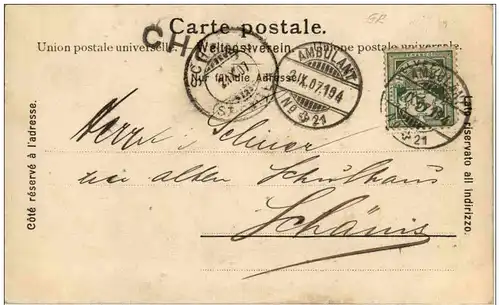 GR
Carte postale.
CH
Union postale universelle. Weltpostverein. Unione postale universale.
Nur für die Adresse.
AMBULANT
2.IX.07.194
No 21
AMBULANT
No 21
Côté réservé à l'adresse.
Lato riservato all indirizzo.
Herrn
alten Schulhaus
Schänis